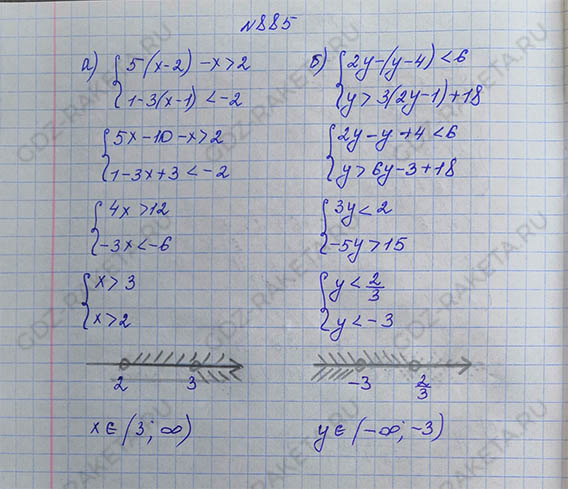 №885
а) { 5(x-2) -x>2
{ 1-3(x-1) <-2
{ 5x-10-x>2
{ 1-3x+3<-2
{ 4x>12
{ -3x<-6
{ x>3
{ x>2
2 3
x∈(3; ∞)
б) { 2y-(y-4)<6
{ y>3(2y-1)+18
{ 2y-y+4<6
{ y>6y-3+18
{ 3y<2
{ -5y>15
{ y<2/3
{ y<-3
-3 2/3
y∈(-∞; -3)
GDZ-RAKETA.RU